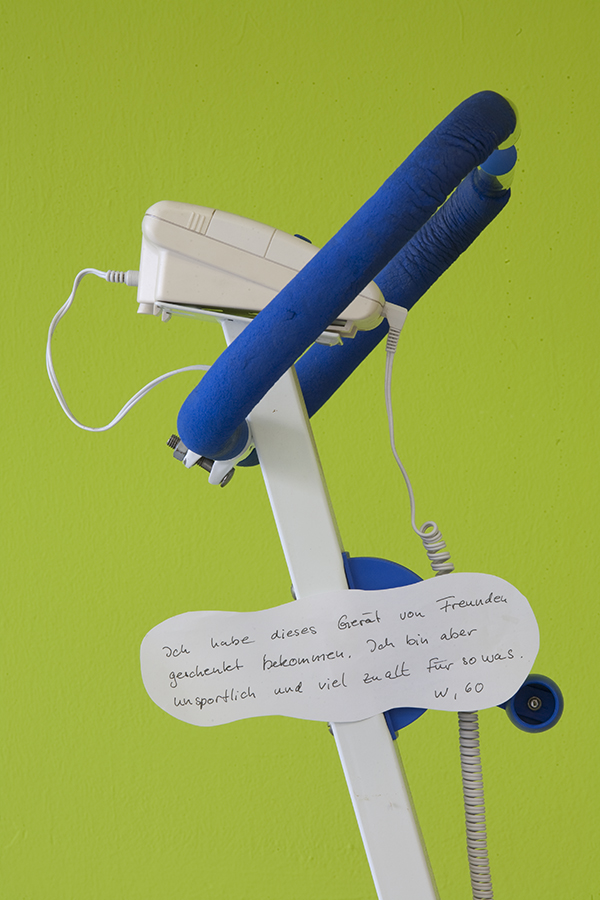 Ich habe dieses Gerät von Freunden
geschenkt bekommen. Ich bin aber
unsportlich und viel zu alt für sowas.
W, 60